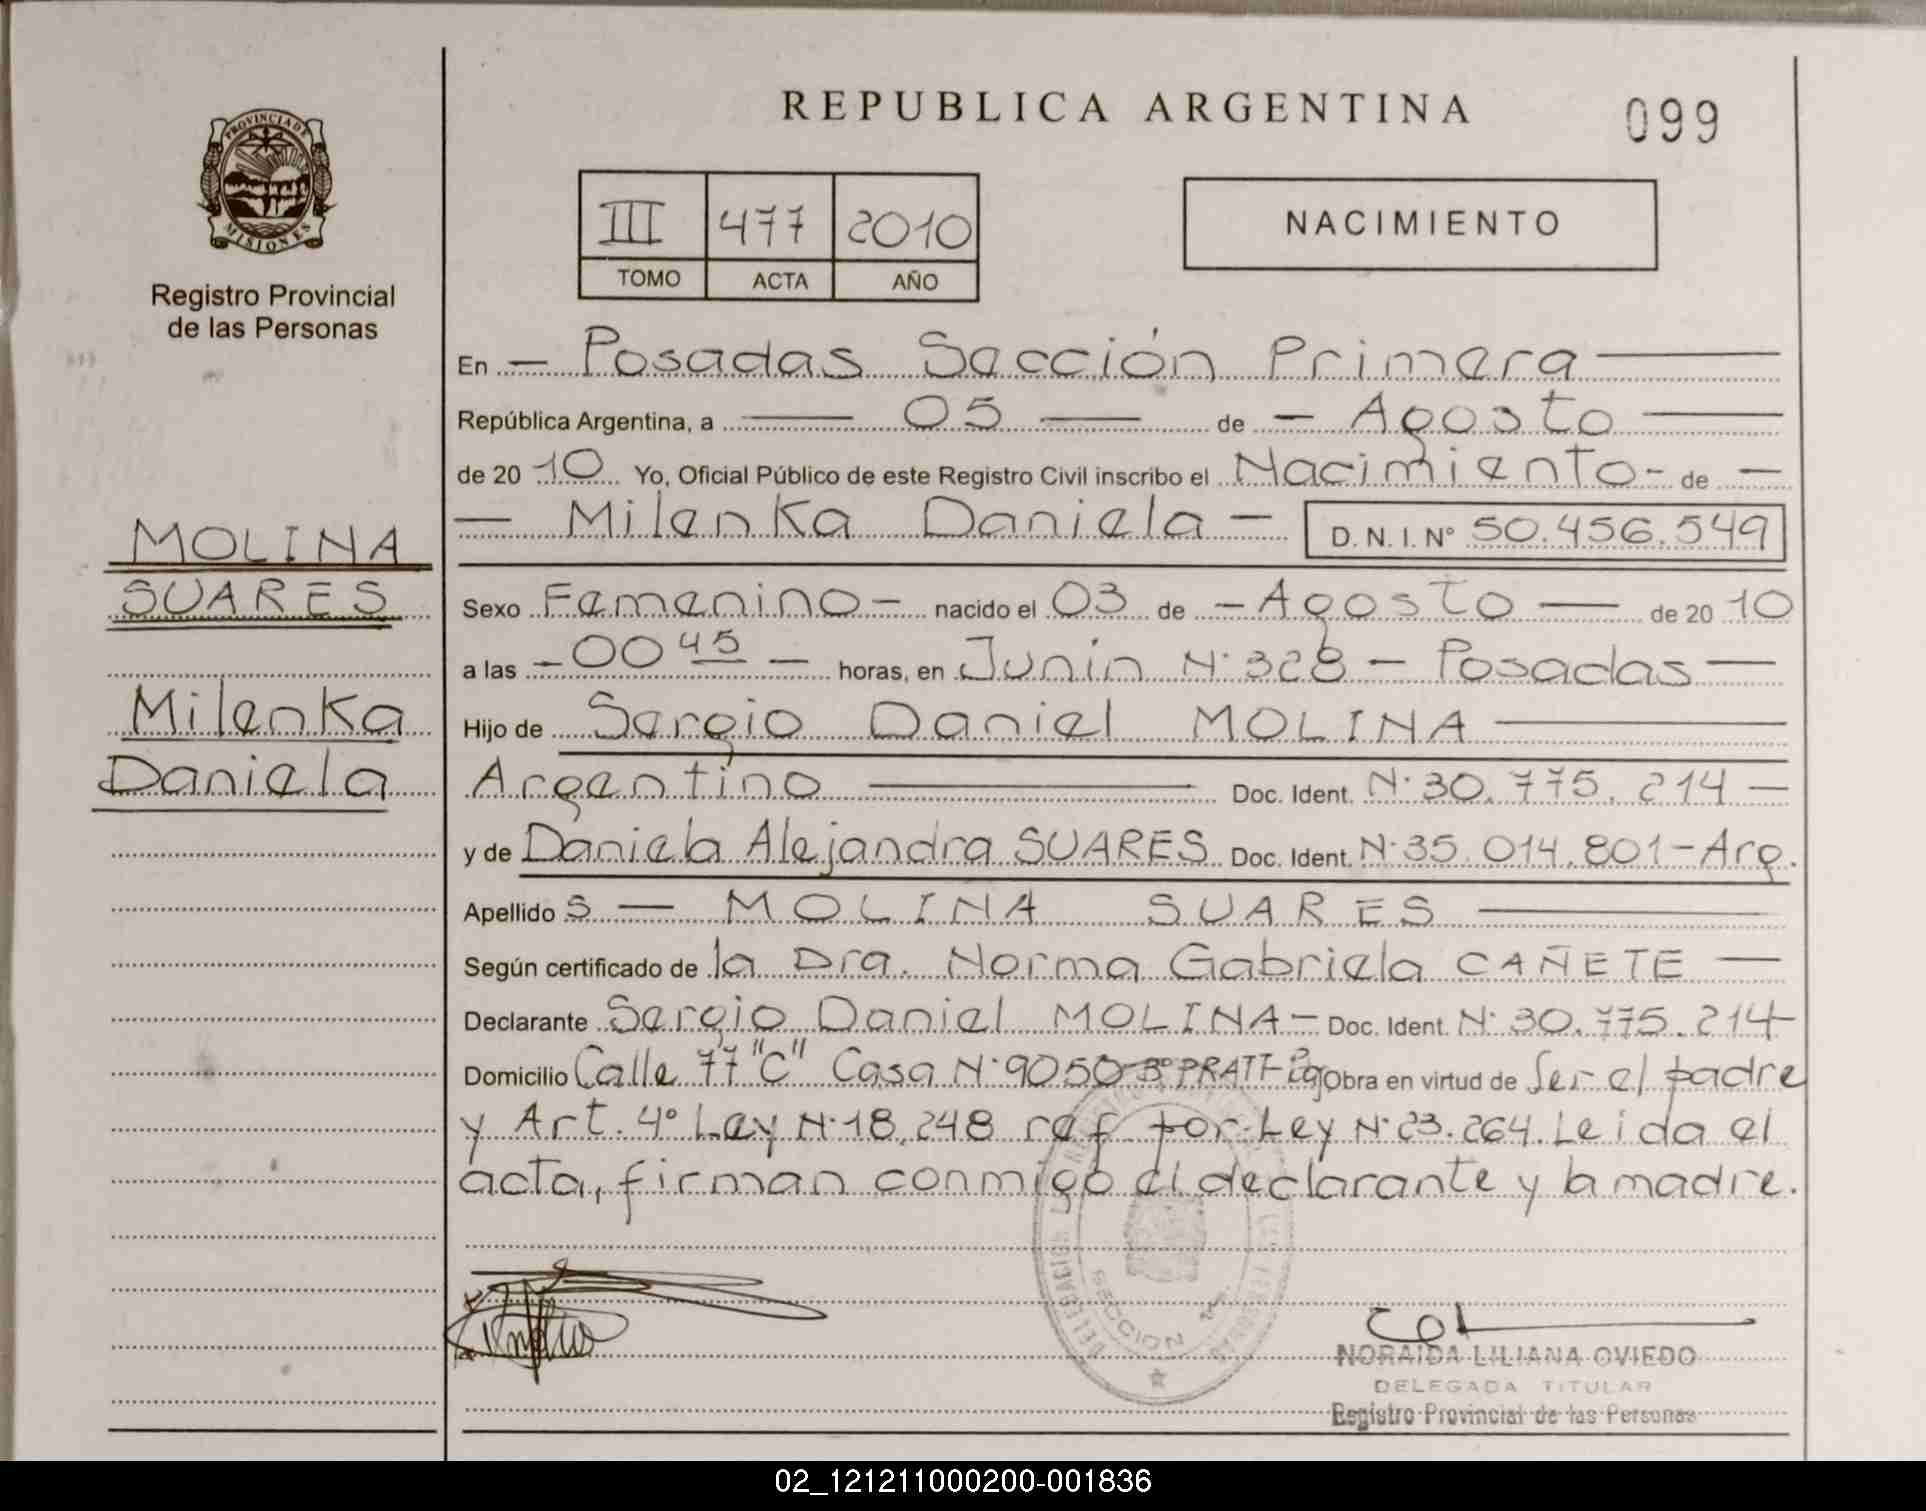 REPUBLICA ARGENTINA
099
PROVINCIA DE
MISIONES
Registro Provincial
de las Personas
III 477 2010
TOMO ACTA AÑO
NACIMIENTO
MOLINA
SUARES
Milenka
Daniela
En — Posadas Sección Primera —
República Argentina, a — 05 — de — Agosto —
de 20 10 Yo, Oficial Público de este Registro Civil inscribo el Nacimiento - de —
— Milenka Daniela — D.N.I. Nº 50.456.549
Sexo Femenino — nacido el 03 de — Agosto — de 20 10
a las — 00 45 — horas, en Junin N° 328 — Posadas —
Hijo de Sergio Daniel MOLINA —
Argentino — Doc. Ident. N° 30.775.214 —
y de Daniela Alejandra SUARES Doc. Ident. N° 35.014.801 - Arg.
Apellido s — MOLINA SUARES —
Según certificado de la Dra. Norma Gabriela CAÑETE —
Declarante Sergio Daniel MOLINA — Doc. Ident. N° 30.775.214
Domicilio Calle 77 "C" Casa N° 9050 Bº PRATT- Obra en virtud de Ser el padre
y Art. 4º Ley N° 18.248 ref por Ley N° 23.264. Leida el
acta, firman conmigo el declarante y la madre.
SECCION
NORAIDA LILIANA OVIEDO
DELEGADA TITULAR
Registro Provincial de las Personas
02_121211000200-001836